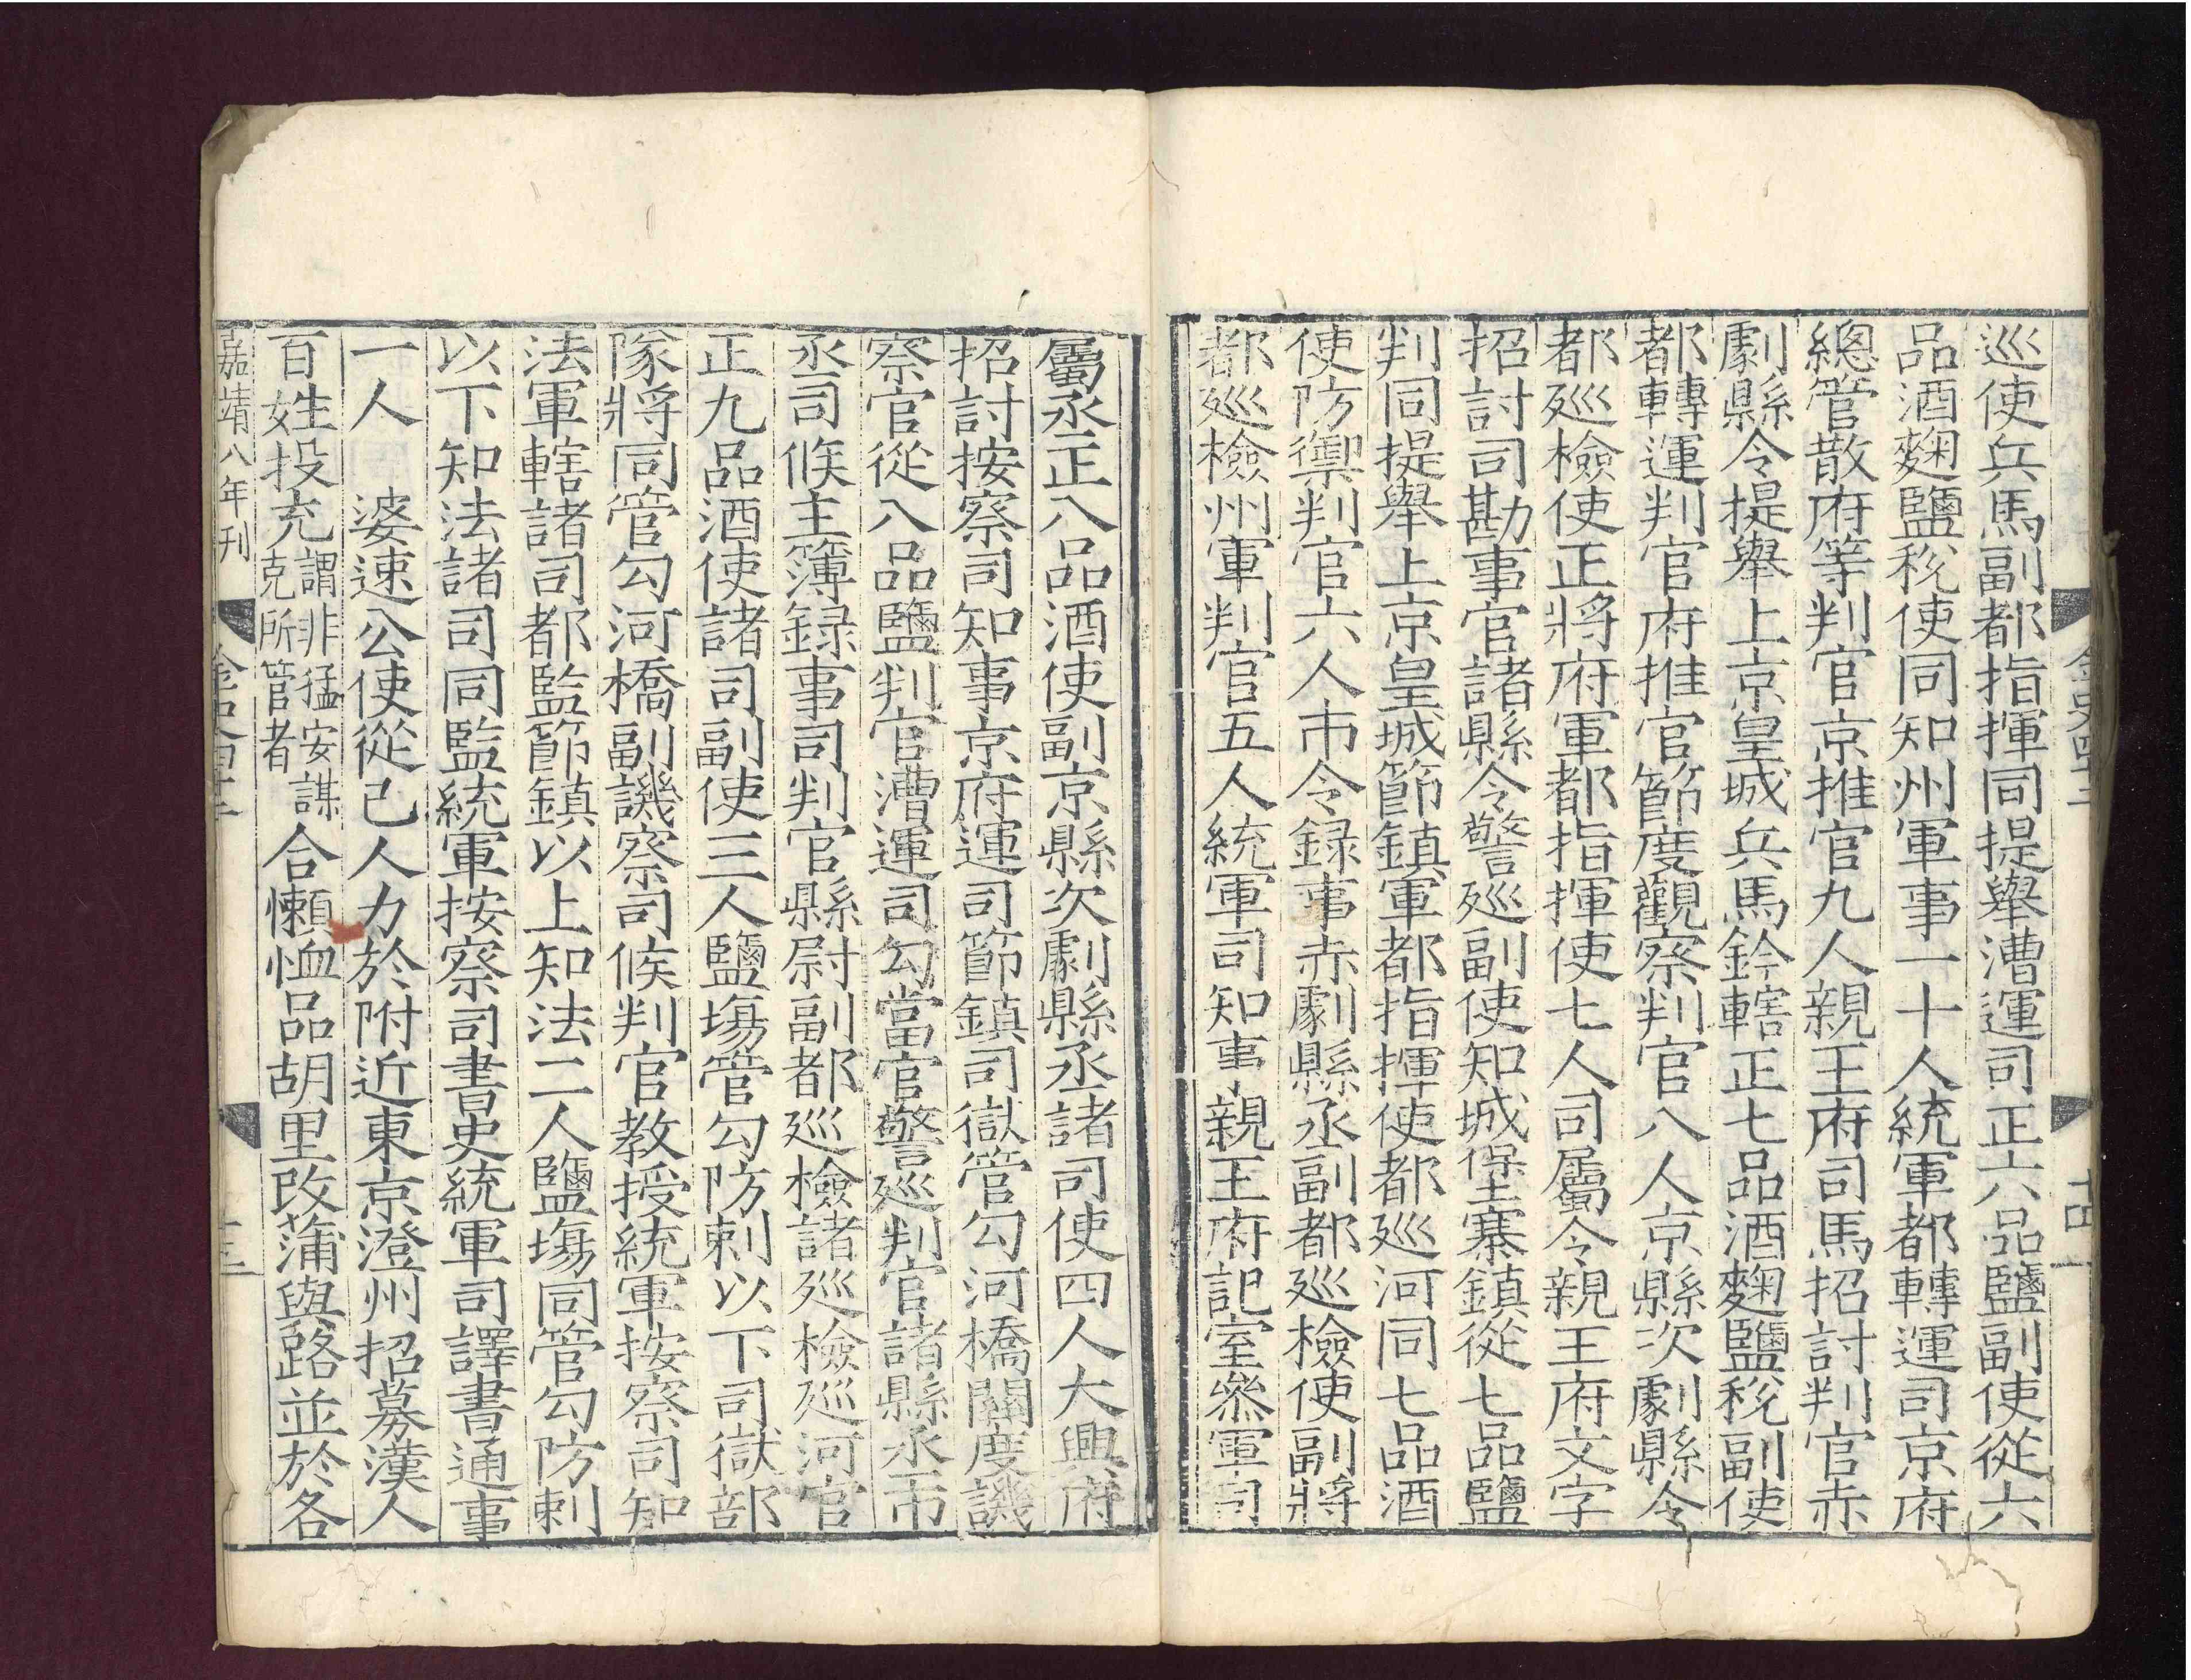 巡使兵馬副都指揮同提舉漕運司正六品鹽副使從六
品酒麴鹽稅使同知州軍事一十人統軍都轉運司京府
總管散府等判官京推官九人親王府司馬招討判官赤
劇縣令提舉上京皇城兵馬鈐轄正七品酒麴鹽稅副使
都轉運判官府推官節度觀察判官八人京縣次劇縣令
都廵檢使正將府軍都指揮使七人司屬令親王府文字
招討司勘事官諸縣令警廵副使知城堡寨鎮從七品鹽
判同提舉上京皇城節鎮軍都指揮使都廵河同七品酒
使防禦判官六人市令録事赤劇縣丞副都廵檢使副將
都廵檢州軍判官五人統軍司知事親王府記室叅軍司
屬丞正八品酒使副京縣次劇縣丞諸司使四人大興府
招討按察司知事京府運司節鎮司獄管勾河橋關度譏
察官從八品鹽判官漕運司勾當官警廵判官諸縣丞市
丞司候主簿録事司判官縣尉副都廵檢諸廵檢廵河官
正九品酒使諸司副使三人鹽塲管勾防刺以下司獄部
隊將同管勾河橋副譏察司候判官教授統軍按察司知
法軍轄諸司都監節鎮以上知法二人鹽塲同管勾防刺
以下知法諸司同監統軍按察司書史統軍司譯書通事
一人　婆速公使從己人力於附近東京澄州招募漢人
百姓投充謂非猛安謀克所管者合懶恤品胡里改蒲與路並於各
嘉靖八年刊